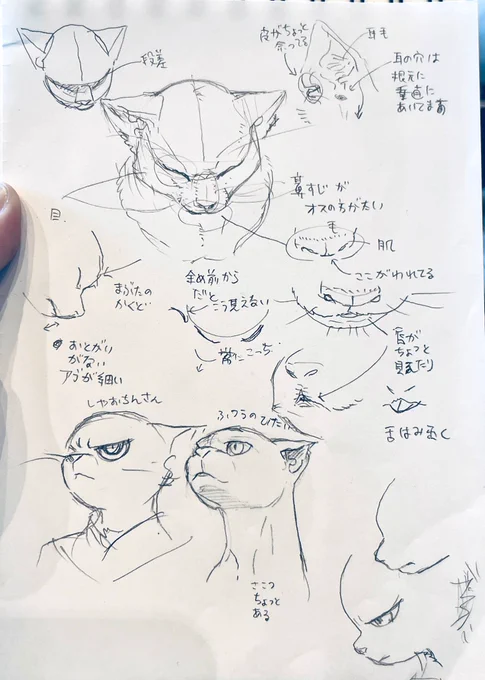 段差
皮がちょっと
余ってる
耳毛
耳の穴は
根元に
垂直に
あいてまあ
鼻すじが
オスのちがたい
毛
肌
ここがわれてる
目
まぶたの
かくど
斜め前から
だと
こう見えない
常にこっち
おとがい
がない
アゴが細い
唇が
ちょっと
見えたり
舌はみ出く
しゃおちんさん
ふつうのひたい
ここつ
ちょっと
ある